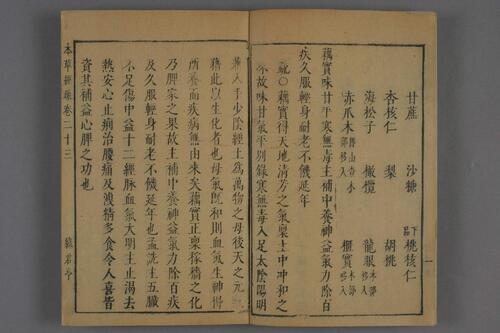 甘蔗 沙糖 下品桃核仁
杏核仁 梨 胡桃
海松子 橄欖 龍眼木部移入
赤爪木 榧實
藕實味甘平寒無毒主補中養神益氣力除百
疾久服輕身耐老不饑延年
疏〇藕實得天地清芳之氣稟土中沖和之
味故味甘氣平別錄寒無毒入足太陰陽明
兼入手少陰經土為萬物之母後天之元氣
藉此以生化者也母氣既和則血氣生神得
所養而疾病無由來矣藕實正稟稼穡之化
乃脾家之果故主補中養神益氣力除百疾
及久服輕身耐老不饑延年也孟詵主五臟
不足傷中益十二經脉血氣大明主止渴去
熱安心止痢治腰痛及洩精多食令人喜皆
資其補益心脾之功也
本草經疏卷二十三
綠君亭